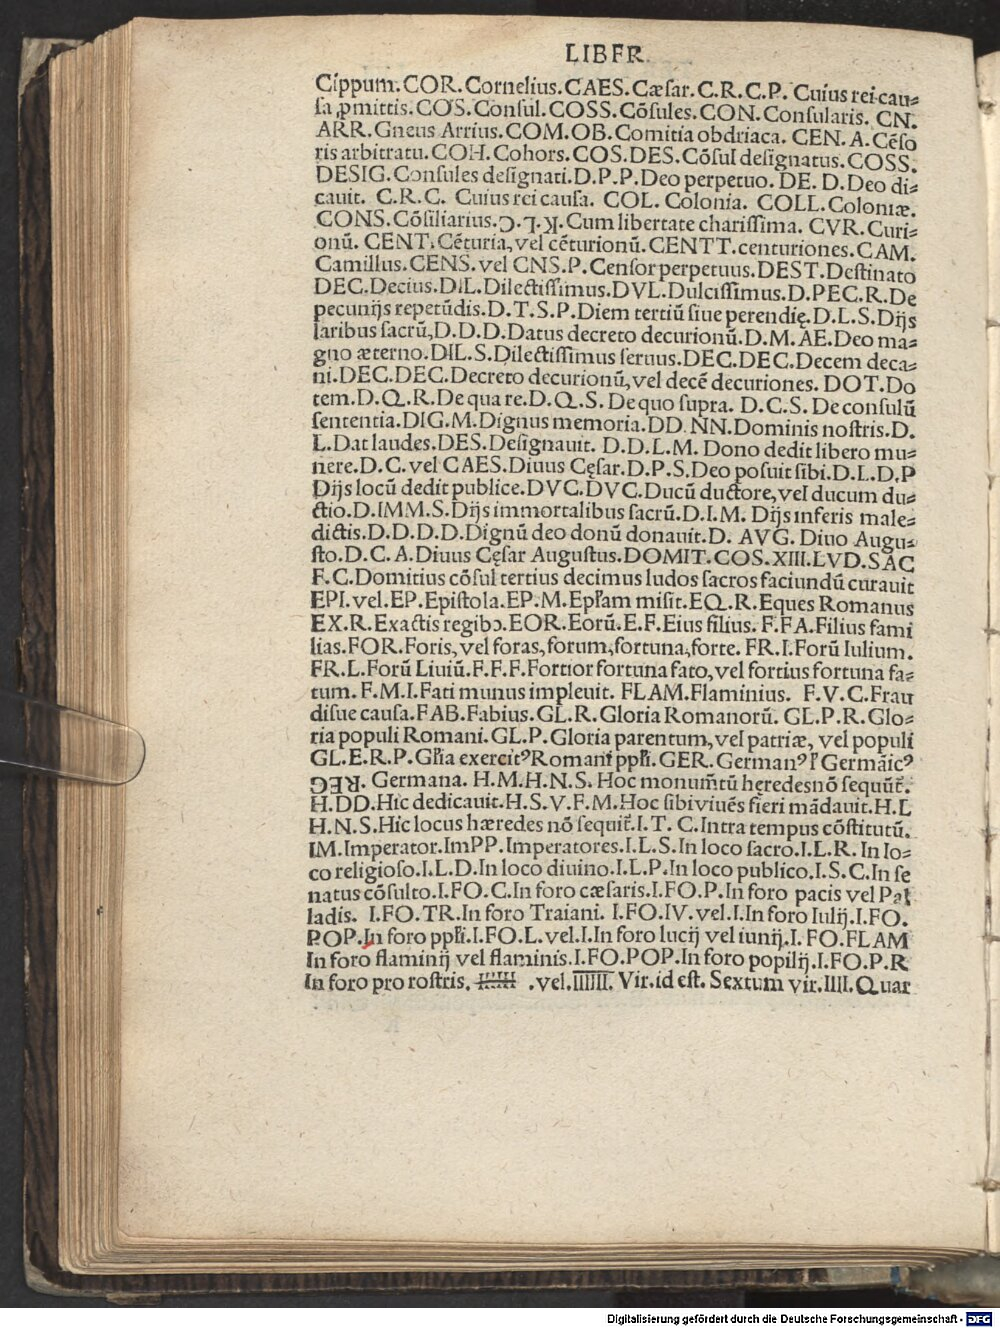 LIBER
Cippum.COR.Cornelius.CAES.Cæsar.C.R.C.P. Cuius rei cau⸗
ſa ꝓmittis.COS.Conſul.COSS.Cõſules.CON.Conſularis. CN.
ARR.Gneus Arrius.COM.OB.Comitia obdriaca. CEN.A.Cẽſo
ris arbitratu.COH.Cohors.COS.DES.Cõſul deſignatus.COSS.
DESIG.Conſules deſignati.D.P.P.Deo perpetuo. DE. D.Deo di⸗
cauit. C.R.C. Cuius rei cauſa. COL. Colonia. COLL.Coloniæ.
CONS.Cõſiliarius. Cum libertate chariſſima. CVR.Curi⸗
onũ. CENT.Cẽturia,vel cẽturionũ.CENTT.centuriones.CAM.
Camillus.CENS.vel CNS.P.Cenſor perpetuus.DEST.Deſtinato
DEC.Decius.DIL.Dilectiſſimus.DVL.Dulciſſimus.D.PEC.R.De
pecunijs repetũdis.D.T.S.P.Diem tertiũ ſiue perendię.D.L.S.Dijs
laribus ſacrũ,D.D.D.Datus decreto decurionũ.D.M.AE.Deo ma⸗
gno æterno.DIL.S.Dilectiſſimus ſeruus.DEC.DEC.Decem deca⸗
ni.DEC.DEC.Decreto decurionũ,vel decẽ decuriones. DOT.Do
tem.D.Q.R.De qua re.D.Q.S. De quo ſupra. D.C.S. De conſulũ
ſententia.DIG.M.Dignus memoria.DD.NN.Dominis noſtris.D.
L.Dat laudes.DES.Deſignauit. D.D.L.M. Dono dedit libero mu⸗
nere.D.C.vel CAES.Diuus Cęſar.D.P.S.Deo poſuit ſibi.D.L.D.P
Dijs locũ dedit publice.DVC.DVC.Ducũ ductore,vel ducum du⸗
ctio.D.IMM.S.Dijs immortalibus ſacrũ.D.I.M. Dijs inferis male⸗
dictis.D.D.D.D.Dignũ deo donũ donauit.D. AVG. Diuo Augu⸗
ſto.D.C.A.Diuus Cęſar Auguſtus.DOMIT.COS.XIII.LVD.SAC
F.C.Domitius cõſul tertius decimus ludos ſacros faciundũ curauit
EPI.vel.EP.Epiſtola.EP.M.Epľam miſit.EQ.R.Eques Romanus
EX.R.Exactis regibɔ.EOR.Eorũ.E.F.Eius filius. F.FA.Filius fami
lias.FOR.Foris,vel foras,forum,fortuna,forte. FR.I.Forũ Iulium.
FR.L.Forũ Liuiũ.F.F.F.Fortior fortuna fato,vel fortius fortuna fa⸗
tum. F.M.I.Fati munus impleuit. FLAM.Flaminius. F.V.C.Frau
diſue cauſa.FAB.Fabius.GL.R.Gloria Romanorũ. GL.P.R.Glo⸗
ria populi Romani.GL.P.Gloria parentum,vel patriæ, vel populi
GL.E.R.P.Gľia exercitꝰ Romani ppľi.GER.Germanꝰ ľ Germãicꝰ
. Germana. H.M.H.N.S. Hoc monum̃tũ hęredes nõ ſequũt̃.
H.DD.Hic dedicauit.H.S.V.F.M.Hoc ſibi viuẽs fieri mãdauit.H.L
H.N.S.Hic locus hæredes nõ ſequit̃.I.T.C.Intra tempus cõſtitutũ.
IM.Imperator.ImPP.Imperatores.I.L.S.In loco ſacro.I.L.R.In lo⸗
co religioſo.I.L.D.In loco diuino.I.L.P.In loco publico.I.S.C.In ſe
natus cõſulto.I.FO.C.In foro cæſaris.I.FO.P.In foro pacis vel Pal
ladis. I.FO.TR.In foro Traiani. I.FO.IV.vel.I.In foro Iulij.I.FO.
POP.In foro ppľi.I.FO.L.vel.I.In foro lucij vel iunij.I.FO.FLAM
In foro flaminij vel flaminis.I.FO.POP.In foro popilij.I.FO.P.R
In foro pro roſtris. .vel. Vir.id eſt. Sextum vir.IIII.Quar
Digitalisierung gefördert durch die Deutsche Forschungsgemeinschaft - DFG